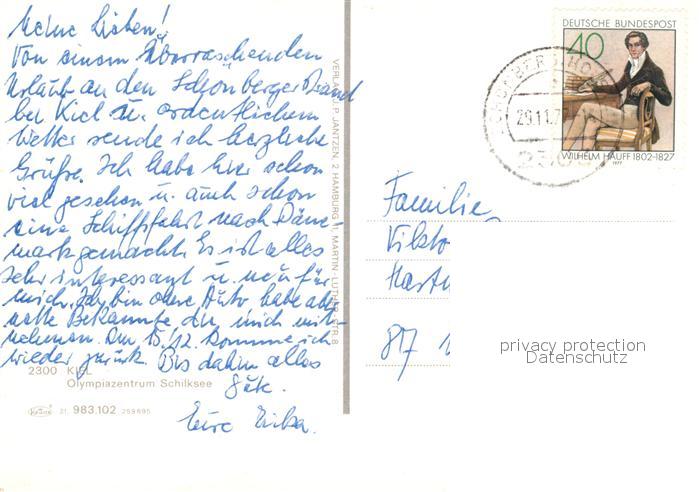 Meine Lieben!
Von einem Überraschenden
Urlaub an den Schönberger Strand
bei Kiel u. ordentlichem
Wetter sende ich herzliche
Grüße. Ich habe hier schon
viel gesehen u. auch schon
eine Schiffsfahrt nach Däne-
mark gemacht. Es ist alles
sehr interessant u. neu für
mich. Ich bin ohne Auto habe aber
nette Bekannte die mich mit-
nehmen. Am 15./12. komme ich
wieder zurück. Bis dahin alles
Gute.
Eure Erika.
2300 KIEL
Olympiazentrum Schilksee
Krüger 21. 983.102 259695
VERLAG J. P. JANTZEN, 2 HAMBURG 11, MARTIN-LUTHER-STR. 8
DEUTSCHE BUNDESPOST
40
WILHELM HAUFF 1802-1827
1977
29.11.7
Familie
Vikto
Hart
817
privacy protection
Datenschutz